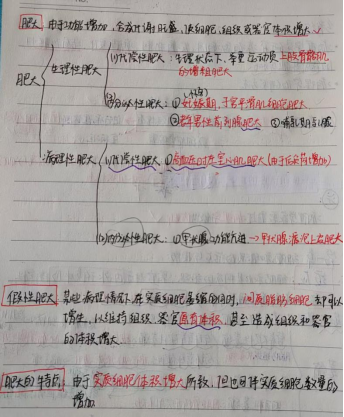 肥大 由于功能增加,合成代谢旺盛,使细胞、组织或器官体积增大
(1)代偿性肥大:生理状态下,举重运动员上肢骨骼肌的增粗肥大
生理性肥大
(2)内分泌性肥大:①妊娠期,子宫平滑肌细胞肥大
肥大
病理性肥大 (1)代偿性肥大 ①高血压时左室心肌肥大(由于后负荷增加)
(2)内分泌性肥大:①甲状腺功能亢进→甲状腺滤泡上皮肥大
假性肥大 某些病理情况下,在实质细胞萎缩的同时,间质脂肪细胞却可以
增生,以维持组织、器官原有体积,甚至造成组织和器官
的体积增大
肥大的特点 由于实质细胞体积增大所致,但也可伴实质细胞数量的
增加